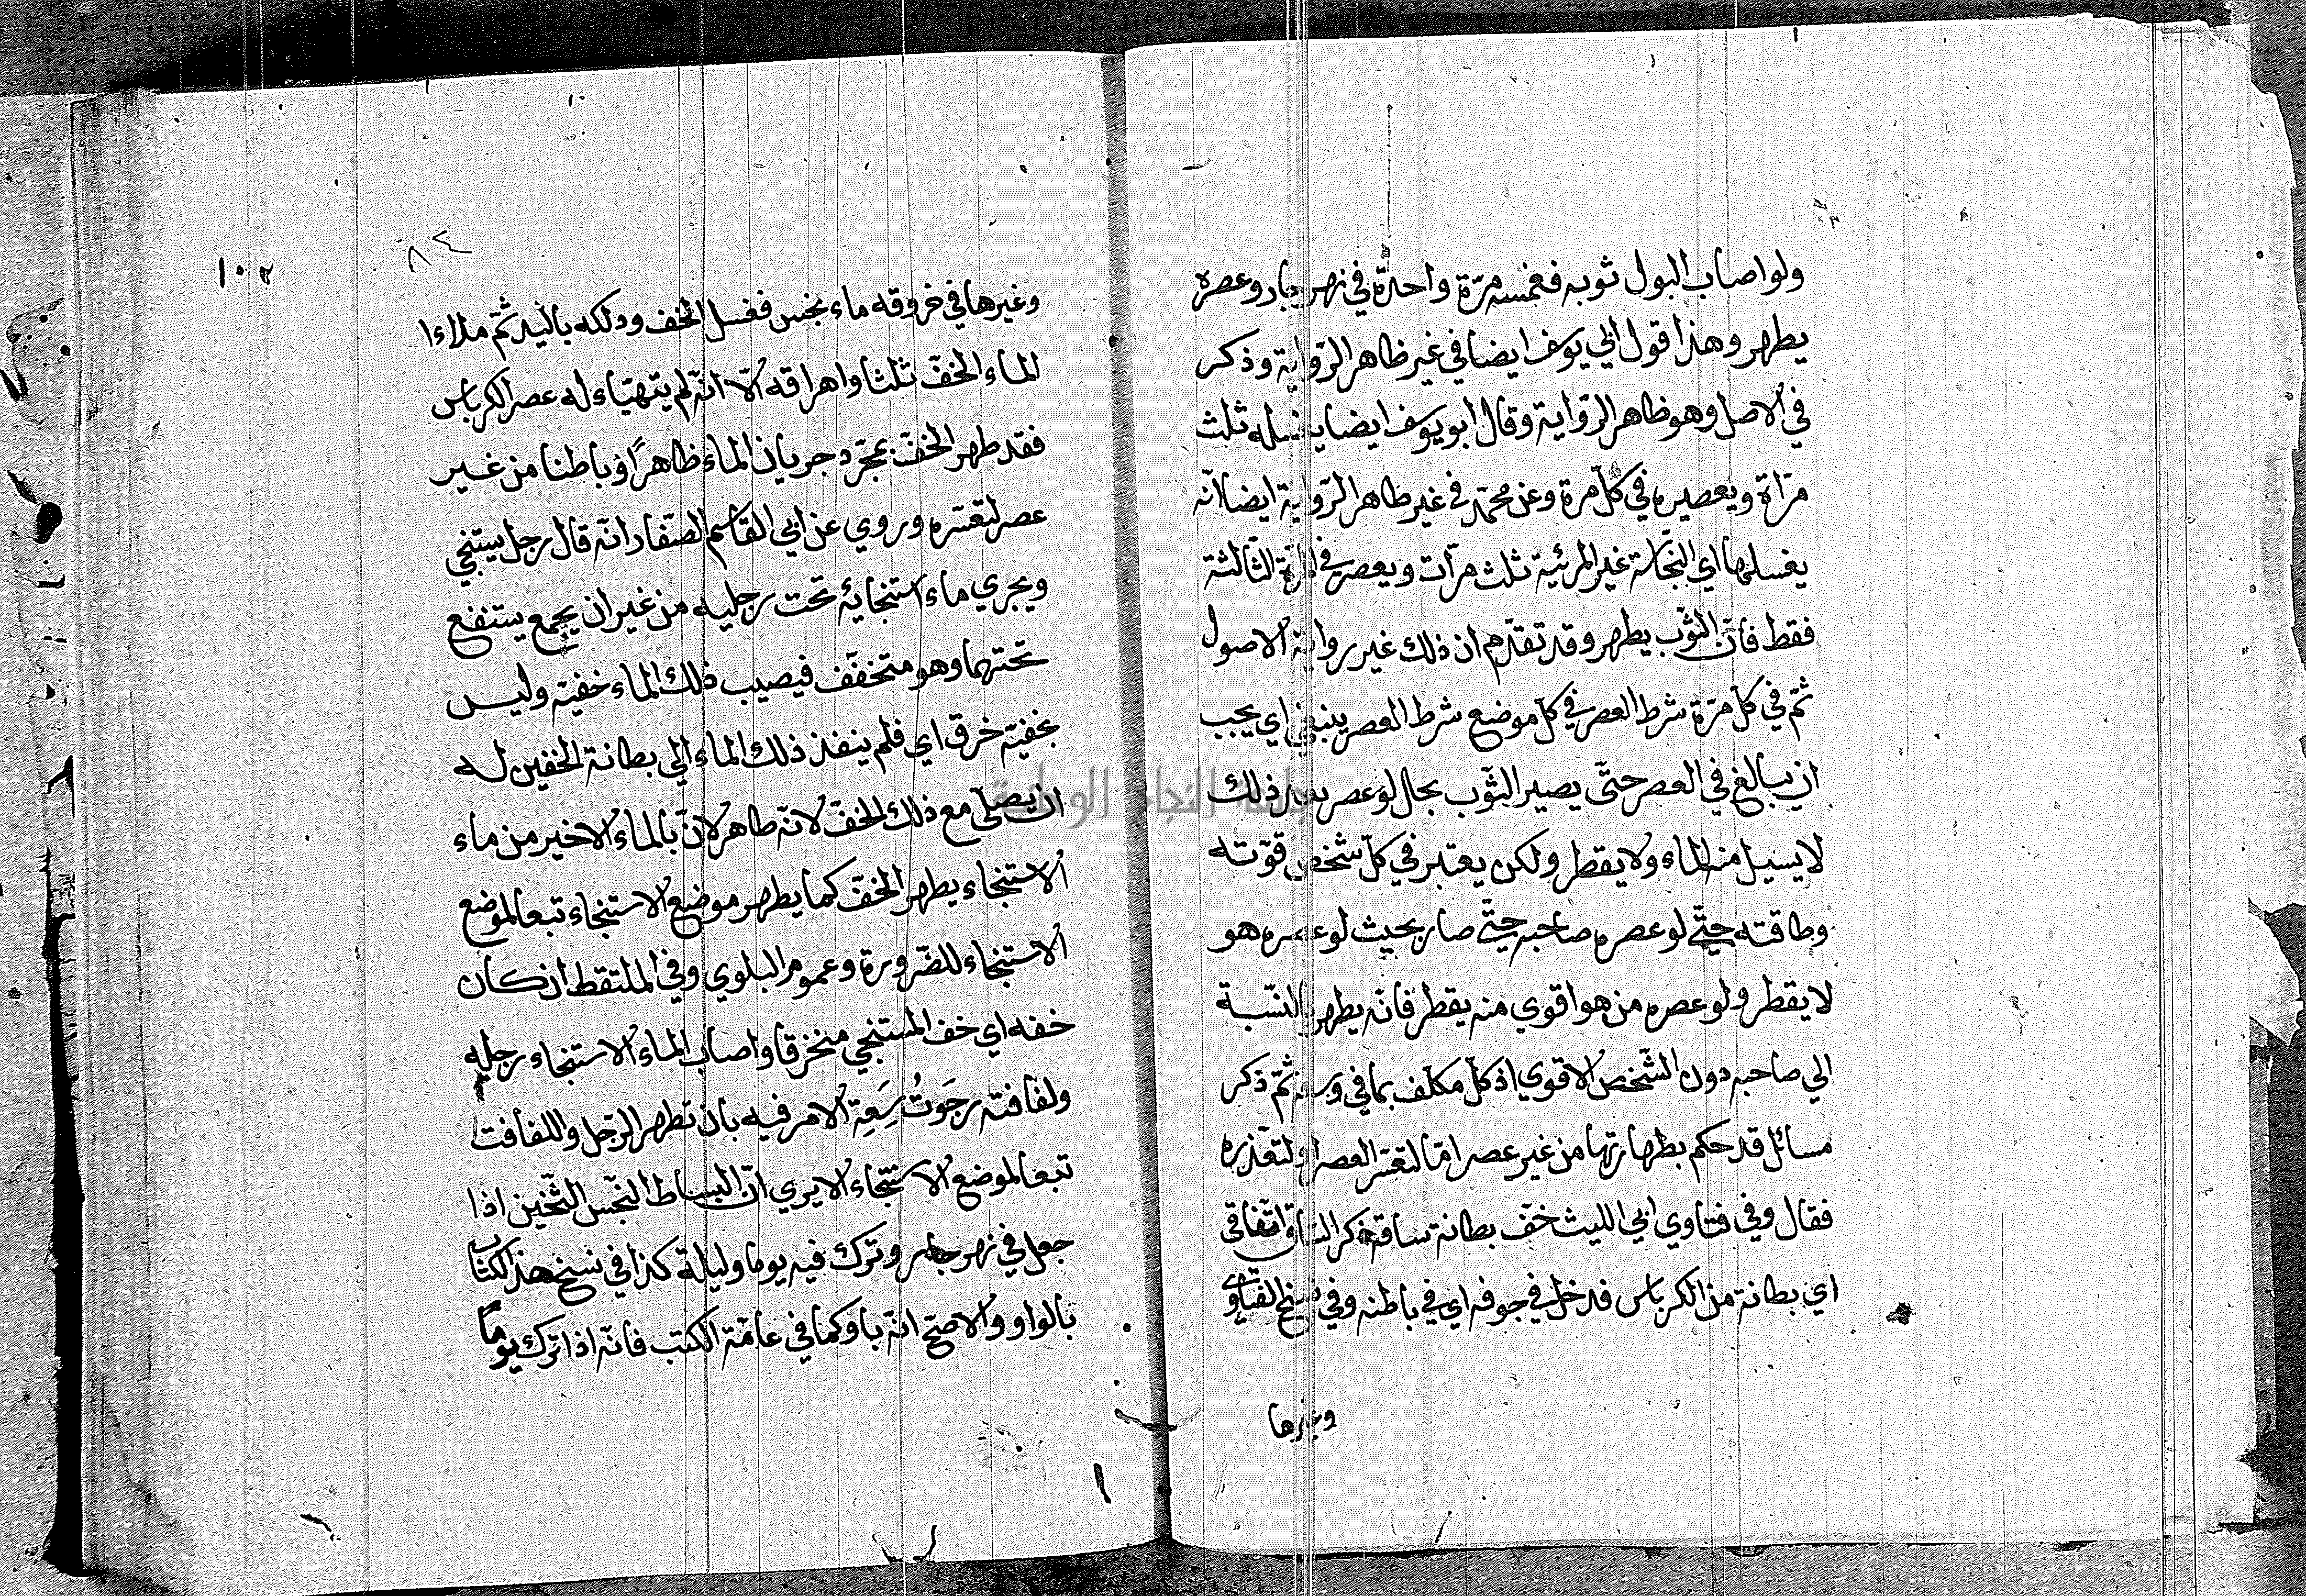 ولو اصاب البول ثوبه فغمسه مرّة واحدة في نهر جار وعصره
يطهر وهذا قول ابي يوسف ايضا في غير ظاهر الرّواية وذكر
في الاصل وهو ظاهر الرّواية وقال ابو يوسف ايضا يغسله ثلث
مرّاة ويعصيره في كلّ مرة وعن محمّد في غير ظاهر الرّواية ايضا انّه
يغسلها اي النّجاسة غير المرئية ثلث مرّات ويعصر في المرّة الثّالثة
فقط فانّ الثّوب يطهر وقد تقدّم ان ذلك غير رواية الاصول
ثمّ في كلّ مرّة شرط العصر في كلّ موضع شرط العصر ينبغي اي يجب
ان يبالغ في العصر حتّى يصير الثّوب بحال لو عصر بعد ذلك
لا يسيل منه الماء ولا يقطر ولكن يعتبر في كلّ شخص قوّته
وطاقته حتّي لو عصره صاحبه حتّي صار بحيث لو عصره هو
لا يقطر ولو عصره من هو اقوي منه يقطر فانّه يطهر بالنّسبة
الي صاحبه دون الشّخص الاقوي اذ كلّ مكلّف بما في وسعه ثمّ ذكر
مسائل قد حكم بطهارتها من غير عصر امّا لتعسّر العصر او لتعذّره
فقال وفي فتاوي ابي الليث خفّ بطانة ساقه ذكر السّاق اتّفاقي
اي بطانة من الكرباس فدخل في جوفه اي في باطنه وفي نسخ الفتاوي
وغيرها
٨٤
١٠٢
وغيرها في خروقه ماء نجس فغسل الخف ودلكه باليد ثمّ ملاءا
الماء الخفّ ثلثا واهراقه الّا انّه لم يتهيّاء له عصر الكرباس
فقد طهر الخفّ بمجرّد جريان الماء ظاهرًا وباطنا من غير
عصر لتعسّره وروي عن ابي القاسم الصّفار انّه قال رجل يستنجي
ويجري ماء استنجائه تحت رجليه من غير ان يجمع يستنقع
تحتهما وهو متخفّف فيصيب ذلك الماء خفيّه وليس
بخفيّه خرق اي فلم ينفذ ذلك الماء الي بطانة الخفين له
ان يصلّى مع ذلك الخفّ لانّه طاهر لانّ بالماء الاخير من ماء
الاستنجاء يطهر الخفّ كما يطهر موضع الاستنجاء تبعا لموضع
الاستنجاء للضّرورة وعموم البلوي وفي الملتقط ان كان
خفه اي خف المستنجي منخرقا واصاب الماء الاستنجاء رجليه
ولفافته رجوت سعة الامر فيه بان تطهر الرّجل واللفافت
تبعا لموضع الاستنجاء الا يري انّ البساط النّجس الثّخين اذا
جعل في نهر جار وترك فيه يوما وليلة كذا في نسخ هذا الكتاب
بالواو والاصحّ انّه باو كما في عامّة الكتب فانّه اذا ترك يوما